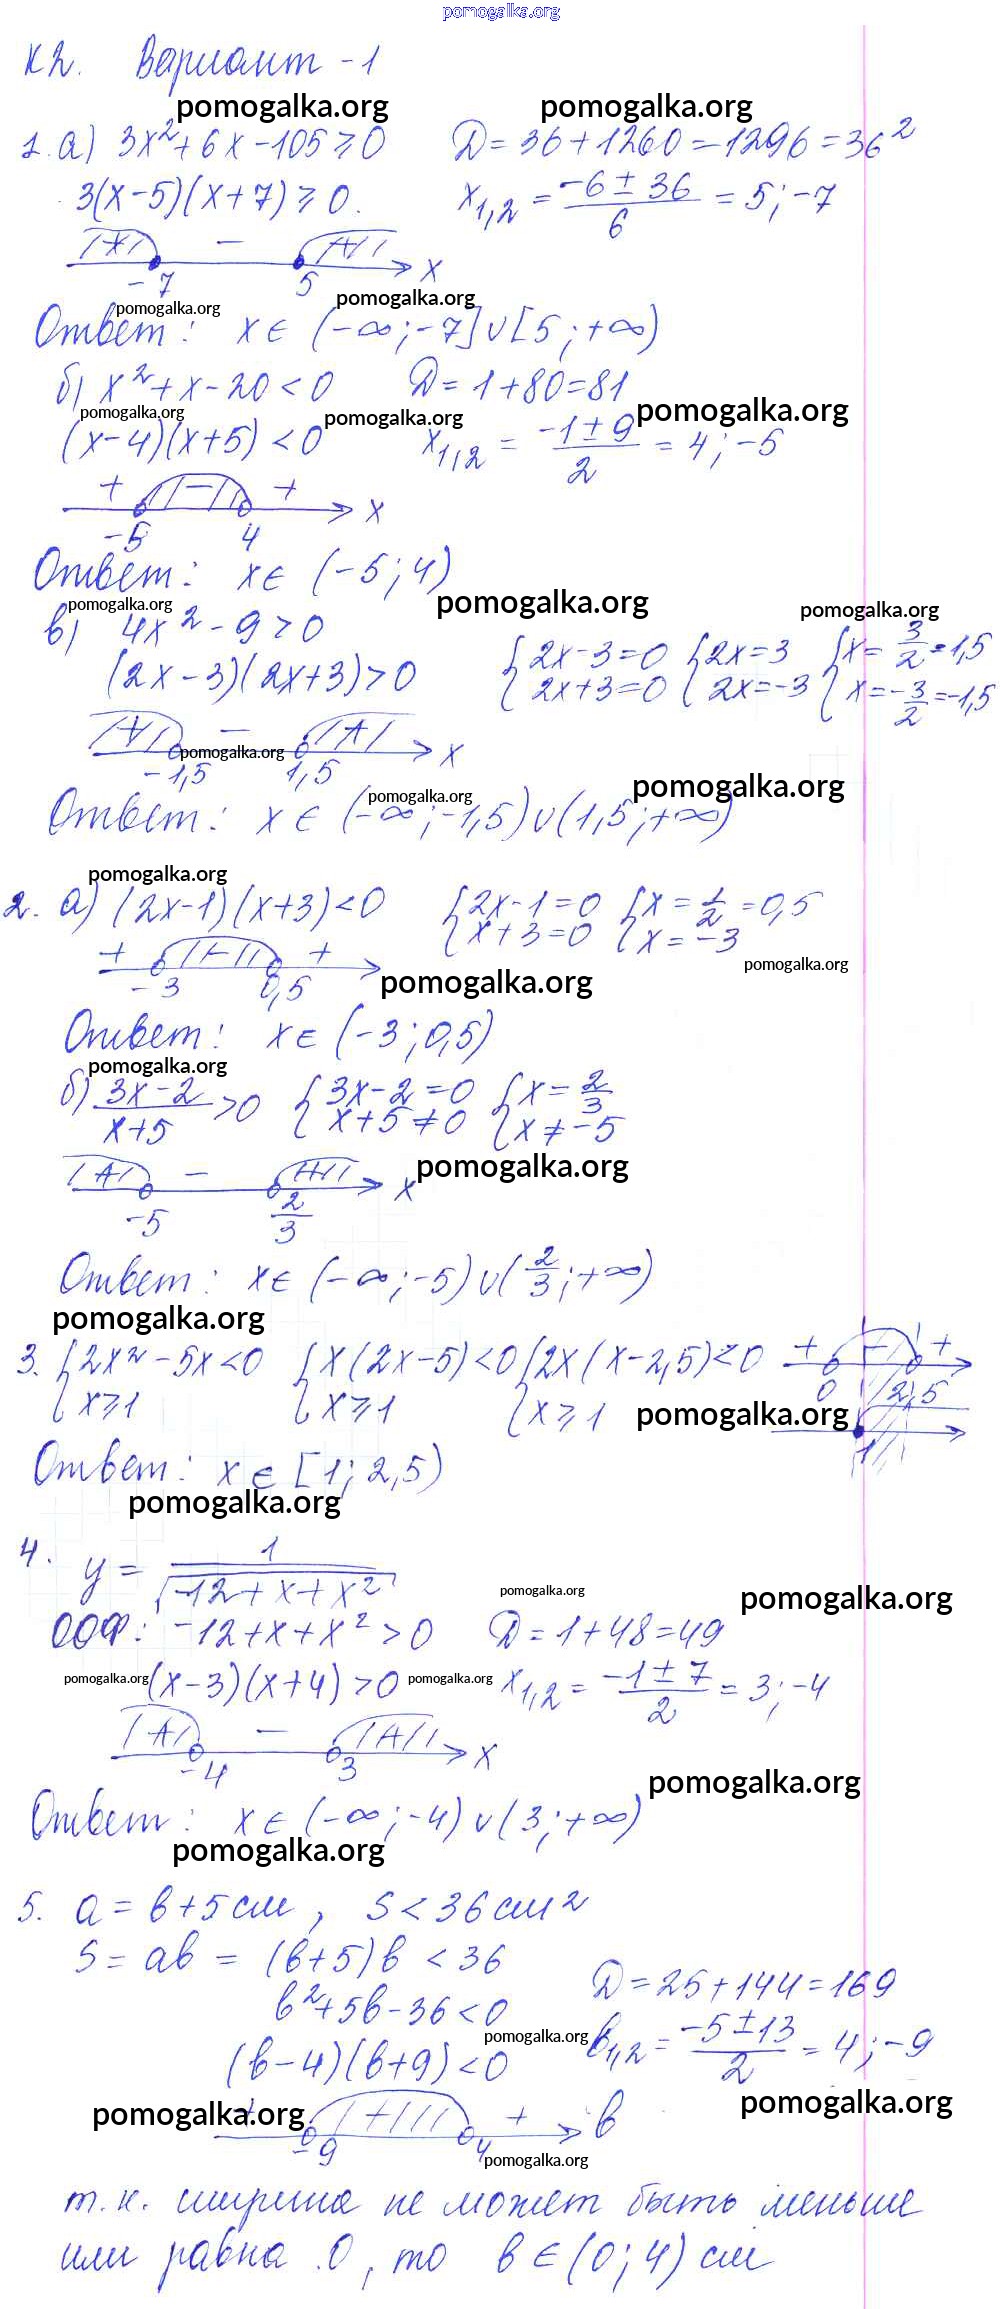 pomogalka.org
К2. Вариант - 1
pomogalka.org pomogalka.org
1. а) 3x² + 6x - 105 ≥ 0 D = 36 + 1260 = 1296 = 36²
3(x-5)(x+7) ≥ 0. x₁,₂ = (-6 ± 36)/6 = 5; -7
+ - + x
-7 5
pomogalka.org pomogalka.org
Ответ: x ∈ (-∞; -7] ∪ [5; +∞)
б) x² + x - 20 < 0 D = 1 + 80 = 81
pomogalka.org pomogalka.org pomogalka.org
(x-4)(x+5) < 0 x₁,₂ = (-1 ± 9)/2 = 4; -5
+ - + x
-5 4
Ответ: x ∈ (-5; 4)
pomogalka.org pomogalka.org pomogalka.org
в) 4x² - 9 > 0
(2x-3)(2x+3) > 0 { 2x-3=0 { 2x=3 { x = 3/2 = 1,5
2x+3=0 2x=-3 x = -3/2 = -1,5
+ - + x
pomogalka.org
-1,5 1,5
pomogalka.org pomogalka.org
Ответ: x ∈ (-∞; -1,5) ∪ (1,5; +∞)
pomogalka.org
2. а) (2x-1)(x+3) < 0 { 2x-1=0 { x = 1/2 = 0,5
x+3=0 x = -3
+ - + pomogalka.org
-3 0,5 pomogalka.org
Ответ: x ∈ (-3; 0,5)
pomogalka.org
б) (3x-2)/(x+5) > 0 { 3x-2=0 { x = 2/3
x+5≠0 x ≠ -5
+ - + x pomogalka.org
-5 2/3
Ответ: x ∈ (-∞; -5) ∪ (2/3; +∞)
pomogalka.org
3. { 2x² - 5x < 0 { x(2x-5) < 0 { 2x(x-2,5) < 0 + - +
x ≥ 1 x ≥ 1 x ≥ 1 0 2,5
pomogalka.org
1
Ответ: x ∈ [1; 2,5)
pomogalka.org
4. y = 1/√(-12 + x + x²)
pomogalka.org pomogalka.org
ООФ: -12 + x + x² > 0 D = 1 + 48 = 49
pomogalka.org (x-3)(x+4) > 0 pomogalka.org x₁,₂ = (-1 ± 7)/2 = 3; -4
+ - + x
-4 3
pomogalka.org
Ответ: x ∈ (-∞; -4) ∪ (3; +∞)
pomogalka.org
5. a = b + 5 см, S < 36 см²
S = ab = (b+5)b < 36
b² + 5b - 36 < 0 D = 25 + 144 = 169
pomogalka.org
(b-4)(b+9) < 0 b₁,₂ = (-5 ± 13)/2 = 4; -9
pomogalka.org pomogalka.org
+ + + b
-9 4
pomogalka.org
т.к. ширина не может быть меньше
или равна 0, то b ∈ (0; 4) см